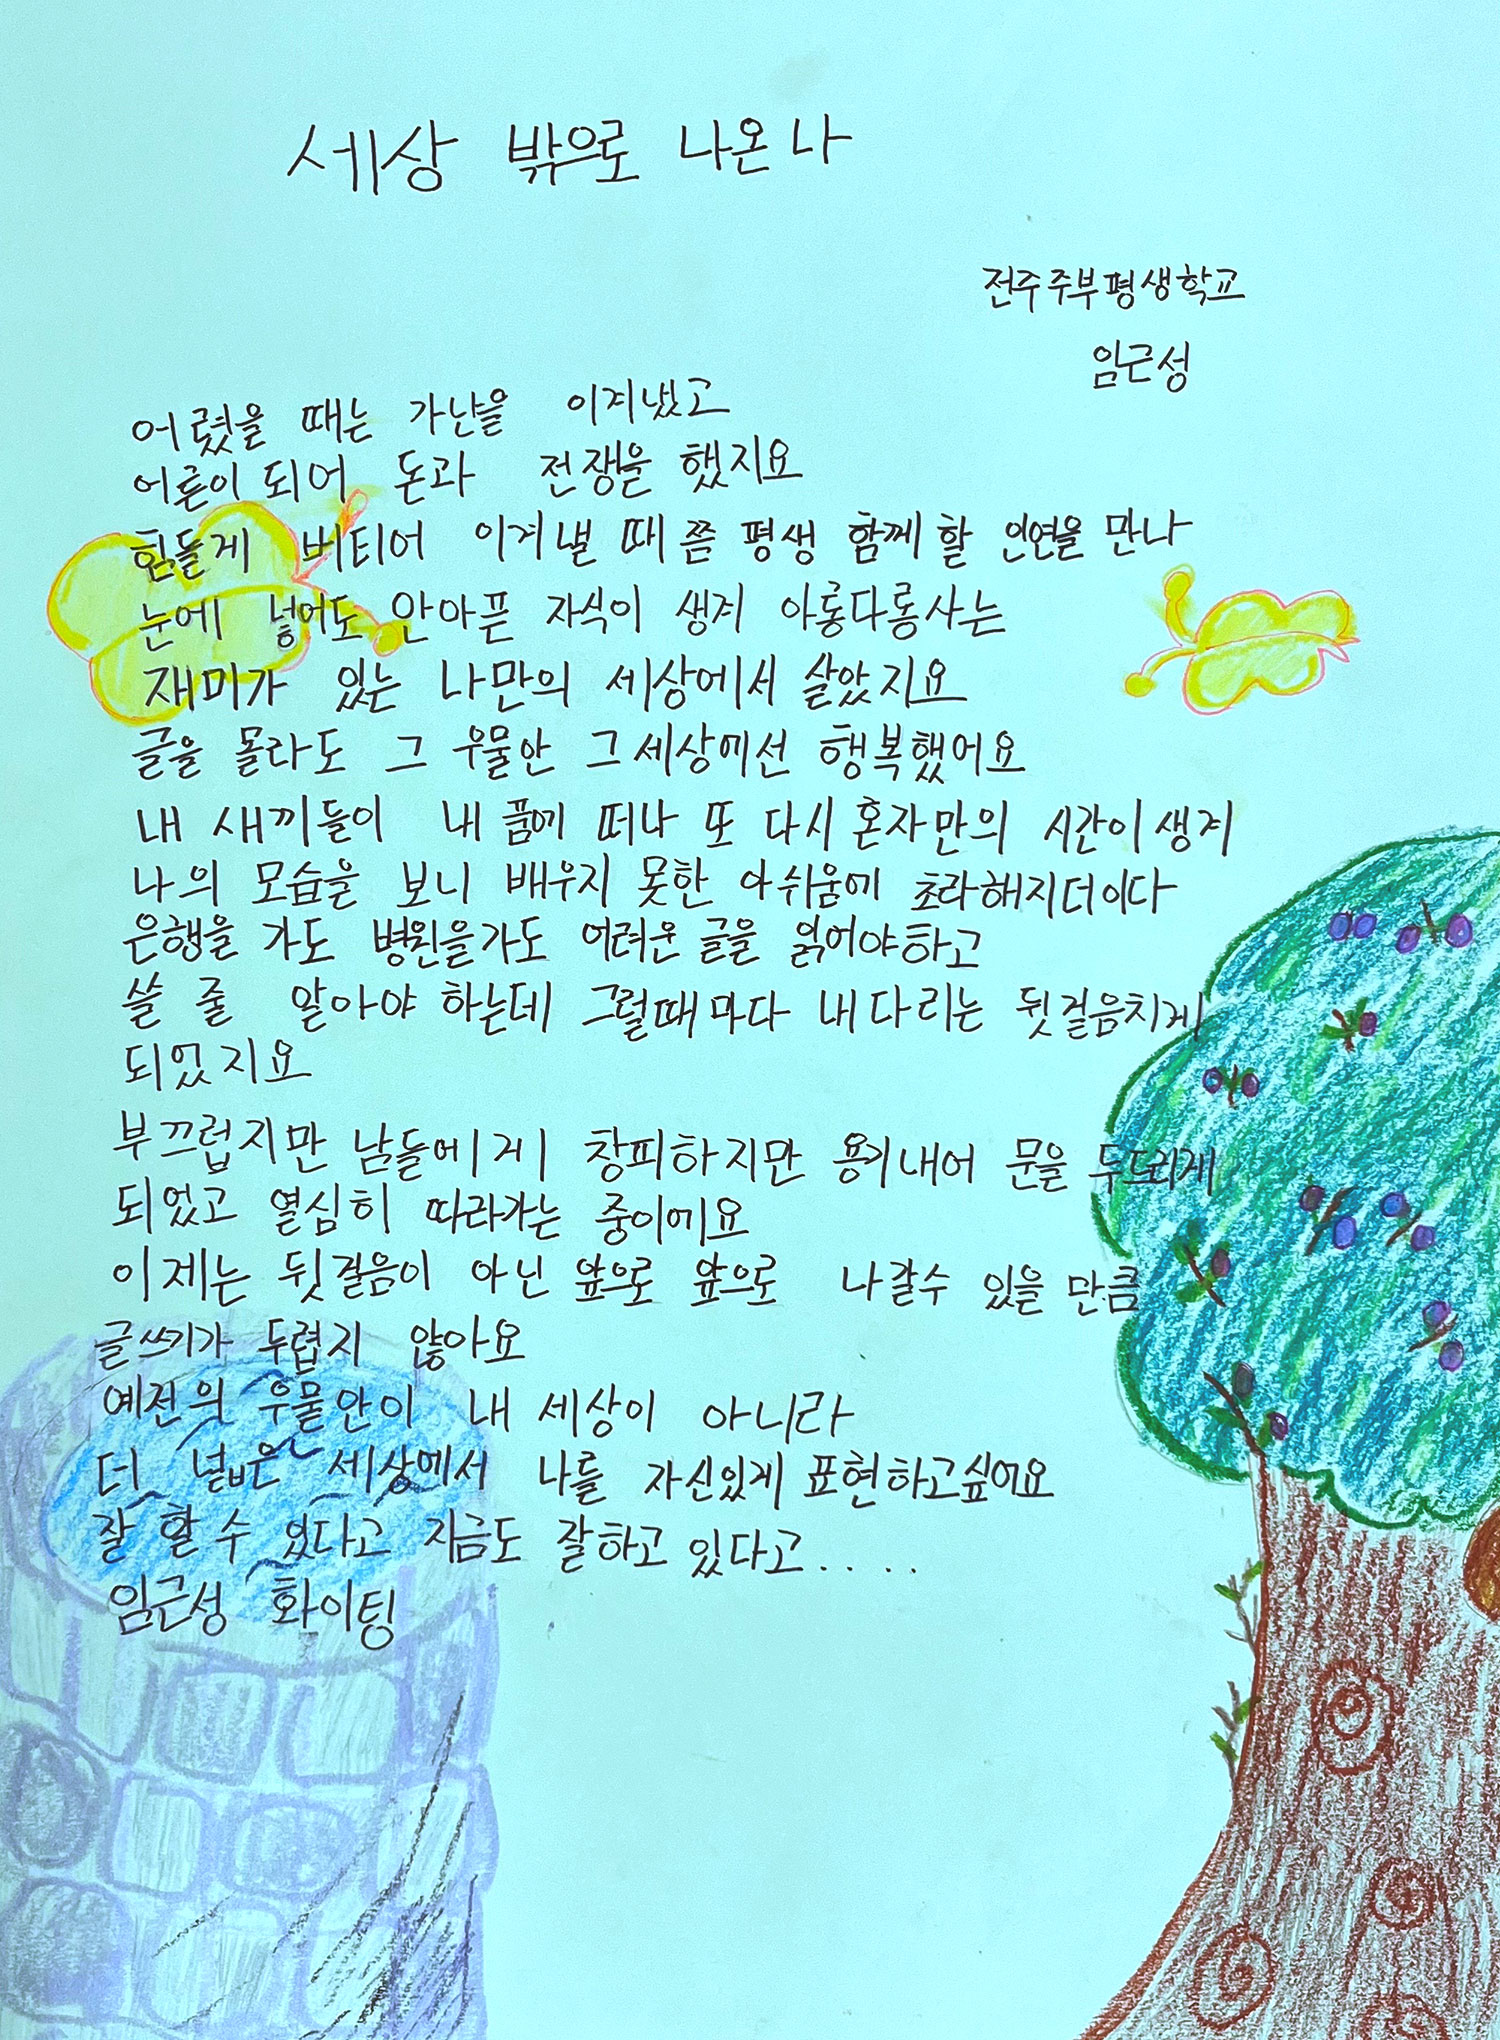 세상 밖으로 나온 나
전주주부평생학교
임근성
어렸을 때는 가난을 이겨냈고
어른이 되어 돈과 전쟁을 했지요
힘들게 버티어 이겨낼 때쯤 평생 함께 할 인연을 만나
눈에 넣어도 안아픈 자식이 생겨 아롱다롱사는
재미가 있는 나만의 세상에서 살았지요
글을 몰라도 그 우물안 그 세상에선 행복했어요
내 새끼들이 내 품에 떠나 또 다시 혼자만의 시간이 생겨
나의 모습을 보니 배우지 못한 아쉬움에 초라해지더이다
은행을 가도 병원을가도 어려운 글을 읽어야하고
쓸 줄 알아야 하는데 그럴때마다 내다리는 뒷걸음치게
되었지요
부끄럽지만 남들에게 창피하지만 용기내어 문을 두드리게
되었고 열심히 따라가는 중이에요
이제는 뒷걸음이 아닌 앞으로 앞으로 나갈수 있을 만큼
글쓰기가 두렵지 않아요
예전의 우물안이 내 세상이 아니라
더 넓은 세상에서 나를 자신있게 표현하고싶어요
잘 할 수 있다고 지금도 잘하고 있다고.....
임근성 화이팅